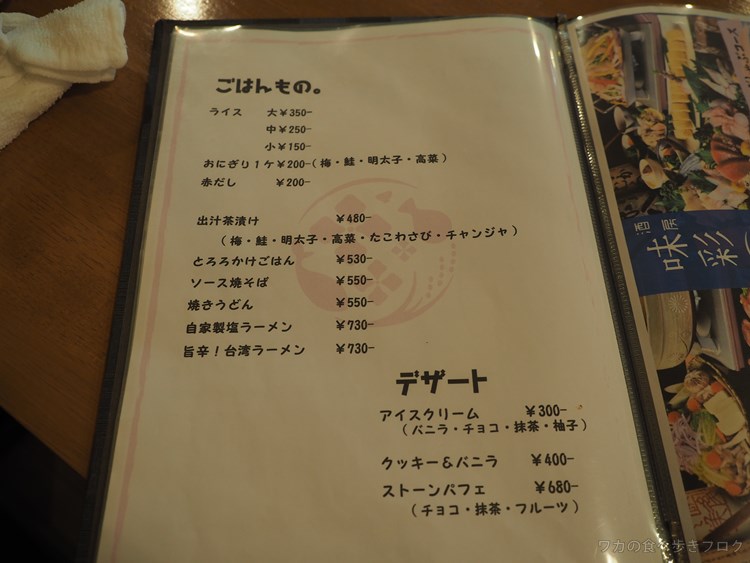 ごはんもの。
ライス 大￥350-
中￥250-
小￥150-
おにぎり１ケ￥200-(梅・鮭・明太子・高菜)
赤だし ￥200-
出汁茶漬け ￥480-
(梅・鮭・明太子・高菜・たこわさび・チャンジャ)
とろろかけごはん ￥530-
ソース焼そば ￥550-
焼きうどん ￥550-
自家製塩ラーメン ￥730-
旨辛！台湾ラーメン ￥730-
デザート
アイスクリーム ￥300-
(バニラ・チョコ・抹茶・柚子)
クッキー＆バニラ ￥400-
ストーンパフェ ￥680-
(チョコ・抹茶・フルーツ)
酒房
味彩
ワカの食べ歩きブログ